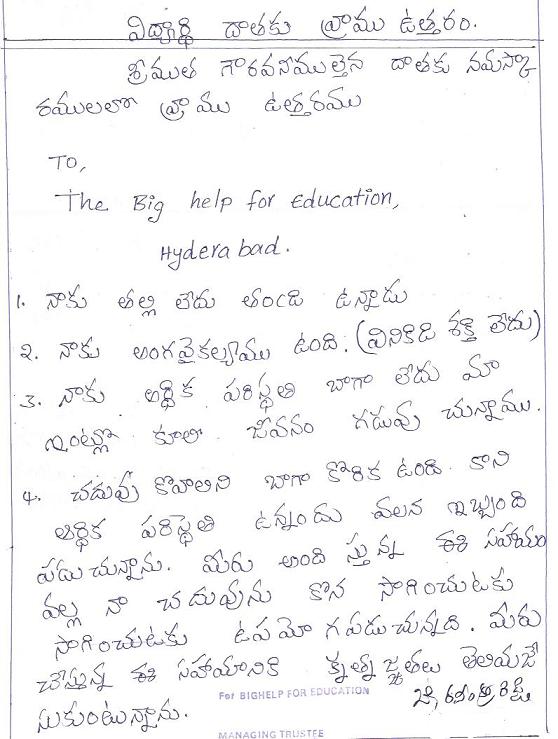 విద్యార్థి దాతకు వ్రాము ఉత్తరం.
శ్రీముత గౌరవనీములైన దాతకు నమస్కా
రములలో వ్రాము ఉత్తరము
TO,
The Big help for Education,
Hyderabad.
1. నాకు తల్లి లేదు తండ్రి ఉన్నాడు
2. నాకు అంగవైకల్యాము ఉంది. (వినికిడి శక్తి లేదు)
3. నాకు ఆర్థిక పరిస్థతి బాగా లేదు మా
ఇంట్లో కూలీ జీవనం గడువు చున్నాము.
4. చదువు కోవాలని బాగా కోరిక ఉంది. కాని
ఆర్థిక పరిస్థితి ఉన్నందు వలన ఇబ్బంది
పడు చున్నాను. మీరు అంది స్తున్న ఈ సహాయం
వల్ల నా చదువును కొన సాగించుటకు
సాగించుటకు ఉపమో గపడుచున్నది. మీరు
చేస్తున్న ఈ సహాయానికి కృతజ్ఞతలు తెలియజే
సుకుంటున్నాను.
For BIGHELP FOR EDUCATION
MANAGING TRUSTEE